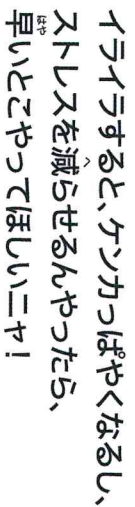 イライラすると、ケンカっぱやくなるし、
ストレスを減らせるんやったら、
早いとこやってほしいニャ！